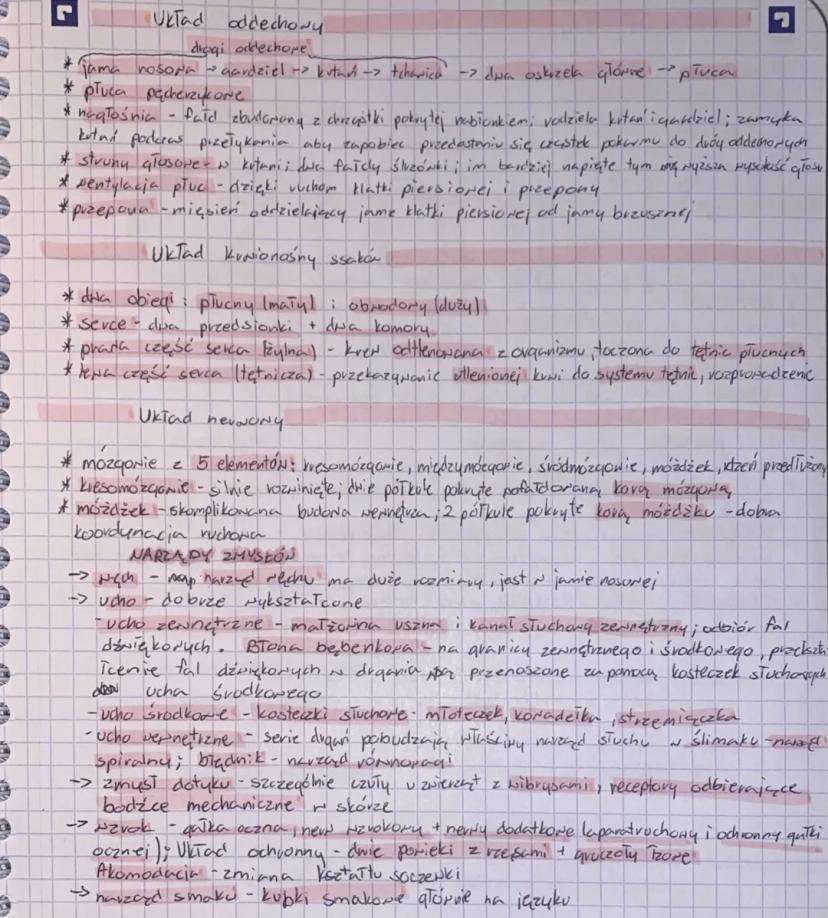 Układ oddechowy
drogi oddechowe
* jama nosowa → gardziel → krtań → tchawica → dwa oskrzela główne → płuca
* płuca pęcherzykowe
* nagłośnia - fałd zbudowany z chrząstki pokrytej nabłonkiem; rodziela krtań i gardziel; zamyka
krtań podczas przełykania aby zapobiec przedostaniu się cząstek pokarmu do dróg oddechowych
* struny głosowe - w krtani; dwa fałdy śluzówki; im bardziej napięte tym wyższa wysokość głosu
* wentylacja płuc - dzięki ruchom klatki piersiowej i przepony
* przepona - mięsień oddzielający jamę klatki piersiowej od jamy brzusznej
Układ krwionośny ssaków
* dwa obiegi: płucny (mały) i obwodowy (duży)
* serce - dwa przedsionki + dwa komory
* prawa część serca (żylna) - krew odtlenowana z organizmu, toczona do tętnic płucnych
* lewa część serca (tętnicza) - przekazywanie utlenionej krwi do systemu tętnic, rozprowadzenie
Układ nerwowy
* mózgowie z 5 elementów: kresomózgowie, międzymózgowie, śródmózgowie, móżdżek, rdzeń przedłużony
* kresomózgowie - silnie rozwinięte; dwie półkule pokryte pofałdowaną korą mózgową
* móżdżek - skomplikowana budowa wewnętrza; 2 półkule pokryte korą móżdżku - dobra
koordynacja ruchowa
NARZĄDY ZMYSŁÓW
→ węch - narząd węchu ma duże rozmiary, jest w jamie nosowej
→ ucho - dobrze wykształcone
- ucho zewnętrzne - małżowina uszna i kanał słuchowy zewnętrzny; odbiór fal
dźwiękowych. Błona bębenkowa - na granicy zewnętrznego i środkowego, przekszta
łcenie fal dźwiękowych w drgania przenoszone za pomocą kosteczek słuchowych
ucha środkowego
- ucho środkowe - kosteczki słuchowe - młoteczek, kowadełko, strzemiączko
- ucho wewnętrzne - serie drgań pobudzają właściwy narząd słuchu w ślimaku - narząd
spiralny; błędnik - narząd równowagi
→ zmysł dotyku - szczególnie czuły u zwierząt z wibrysami, receptory odbierające
bodźce mechaniczne w skórze
→ wzrok - gałka oczna, nerw wzrokowy + nerwy dodatkowe (aparat ruchowy i ochronny gałki
ocznej); Układ ochronny - dwie powieki z rzęsami + gruczoły łzowe
Akomodacja - zmiana kształtu soczewki
→ narząd smaku - kubki smakowe głównie na języku